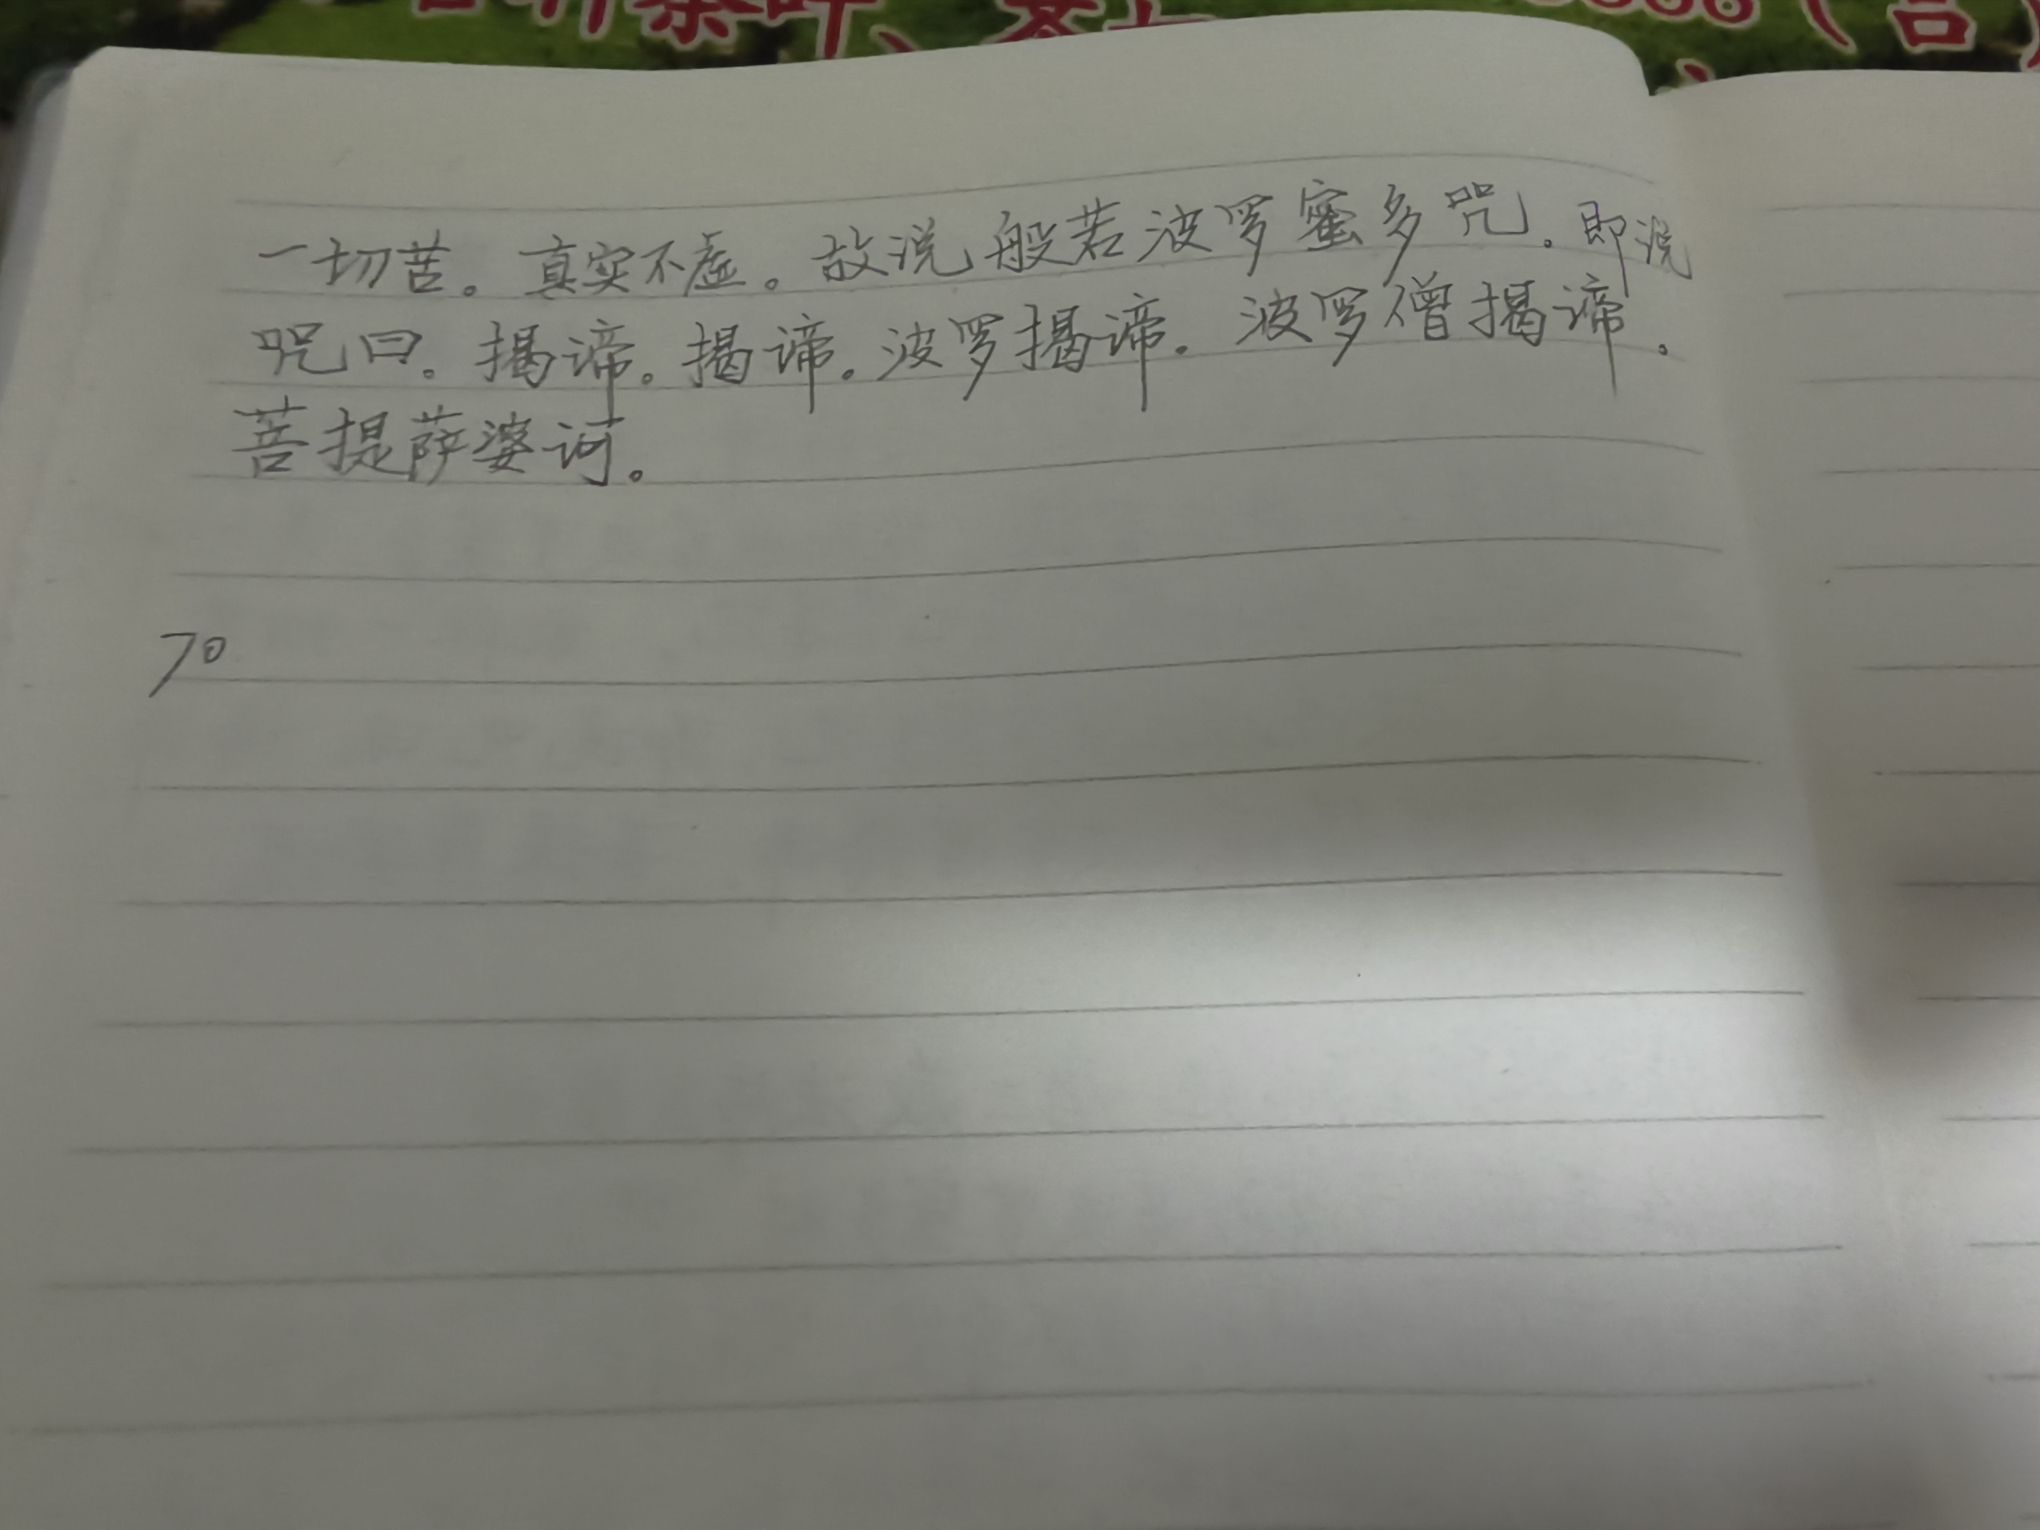 茶叶、
一切苦。真实不虚。故说般若波罗蜜多咒。即说
咒曰。揭谛。揭谛。波罗揭谛。波罗僧揭谛。
菩提萨婆诃。
70